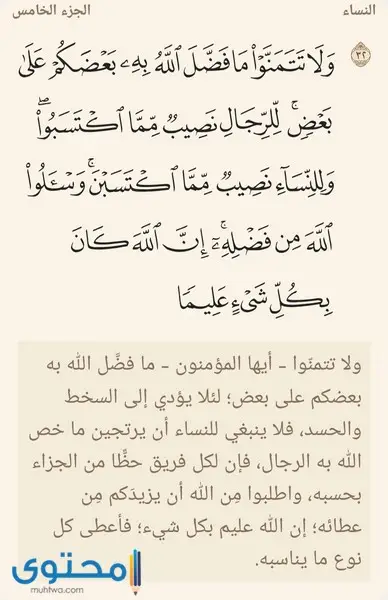 النساء الجزء الخامس
٣٢ وَلَا تَتَمَنَّوْا۟ مَا فَضَّلَ ٱللَّهُ بِهِۦ بَعْضَكُمْ عَلَىٰ
بَعْضٍۢ ۚ لِّلرِّجَالِ نَصِيبٌۭ مِّمَّا ٱكْتَسَبُوا۟ ۖ
وَلِلنِّسَآءِ نَصِيبٌۭ مِّمَّا ٱكْتَسَبْنَ ۚ وَسْـَٔلُوا۟
ٱللَّهَ مِن فَضْلِهِۦٓ ۗ إِنَّ ٱللَّهَ كَانَ
بِكُلِّ شَىْءٍ عَلِيمًۭا
ولا تتمنّوا - أيها المؤمنون - ما فضَّل الله به
بعضكم على بعض؛ لئلا يؤدي إلى السخط
والحسد، فلا ينبغي للنساء أن يرتجين ما خص
الله به الرجال، فإن لكل فريق حظًّا من الجزاء
بحسبه، واطلبوا مِن الله أن يزيدَكم مِن
عطائه؛ إن الله عليم بكل شيء؛ فأعطى كل
نوع ما يناسبه.
محتوى
muhtwa.com